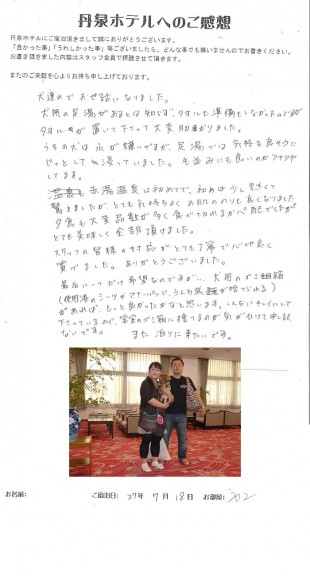 丹泉ホテルへのご感想
丹泉ホテルにご宿泊頂きまして誠にありがとうございます。
「良かった事」「うれしかった事」等ございましたら、どんな事でも構いませんのでお書きください。
お書き頂きました内容はスタッフ全員で拝読させて頂きます。
またのご来館を心よりお待ち申し上げております。
犬連れで お世話になりました。
犬用の足湯があるとは知らず、タオルも準備をしなかったのですが
タオルまで置いて下さって大変助かりました。
うちの犬は水が嫌いですが、足湯では気持ち良さそうに
じっとして浸っていました。毛並みにも良いのかツヤツヤ
してます。
赤湯温泉は初めてで、初めは少し熱くて
驚きましたが、とても気持ちよくお肌のノリも良くなりました
夕食も大変品数が多く食べて切れるか心配でしたが
とても美味しく全部頂けました。
スタッフの皆様の対応がとても丁寧で心地良く
ました。ありがとうございました。
最后に一つだけ希望なのですが、犬用のゴミ箱
(使用済のシーツやマナーバッグ、うんち袋が捨てられる)
があれば、もっと良かったかなと思います。こんなにキレイにして
下さっているので、客室のゴミ箱に捨てるのが気がひけて申し訳
ないです。 また 泊りに来たいです。
お名前:
ご宿泊日: 27年 7月 18日
お部屋: